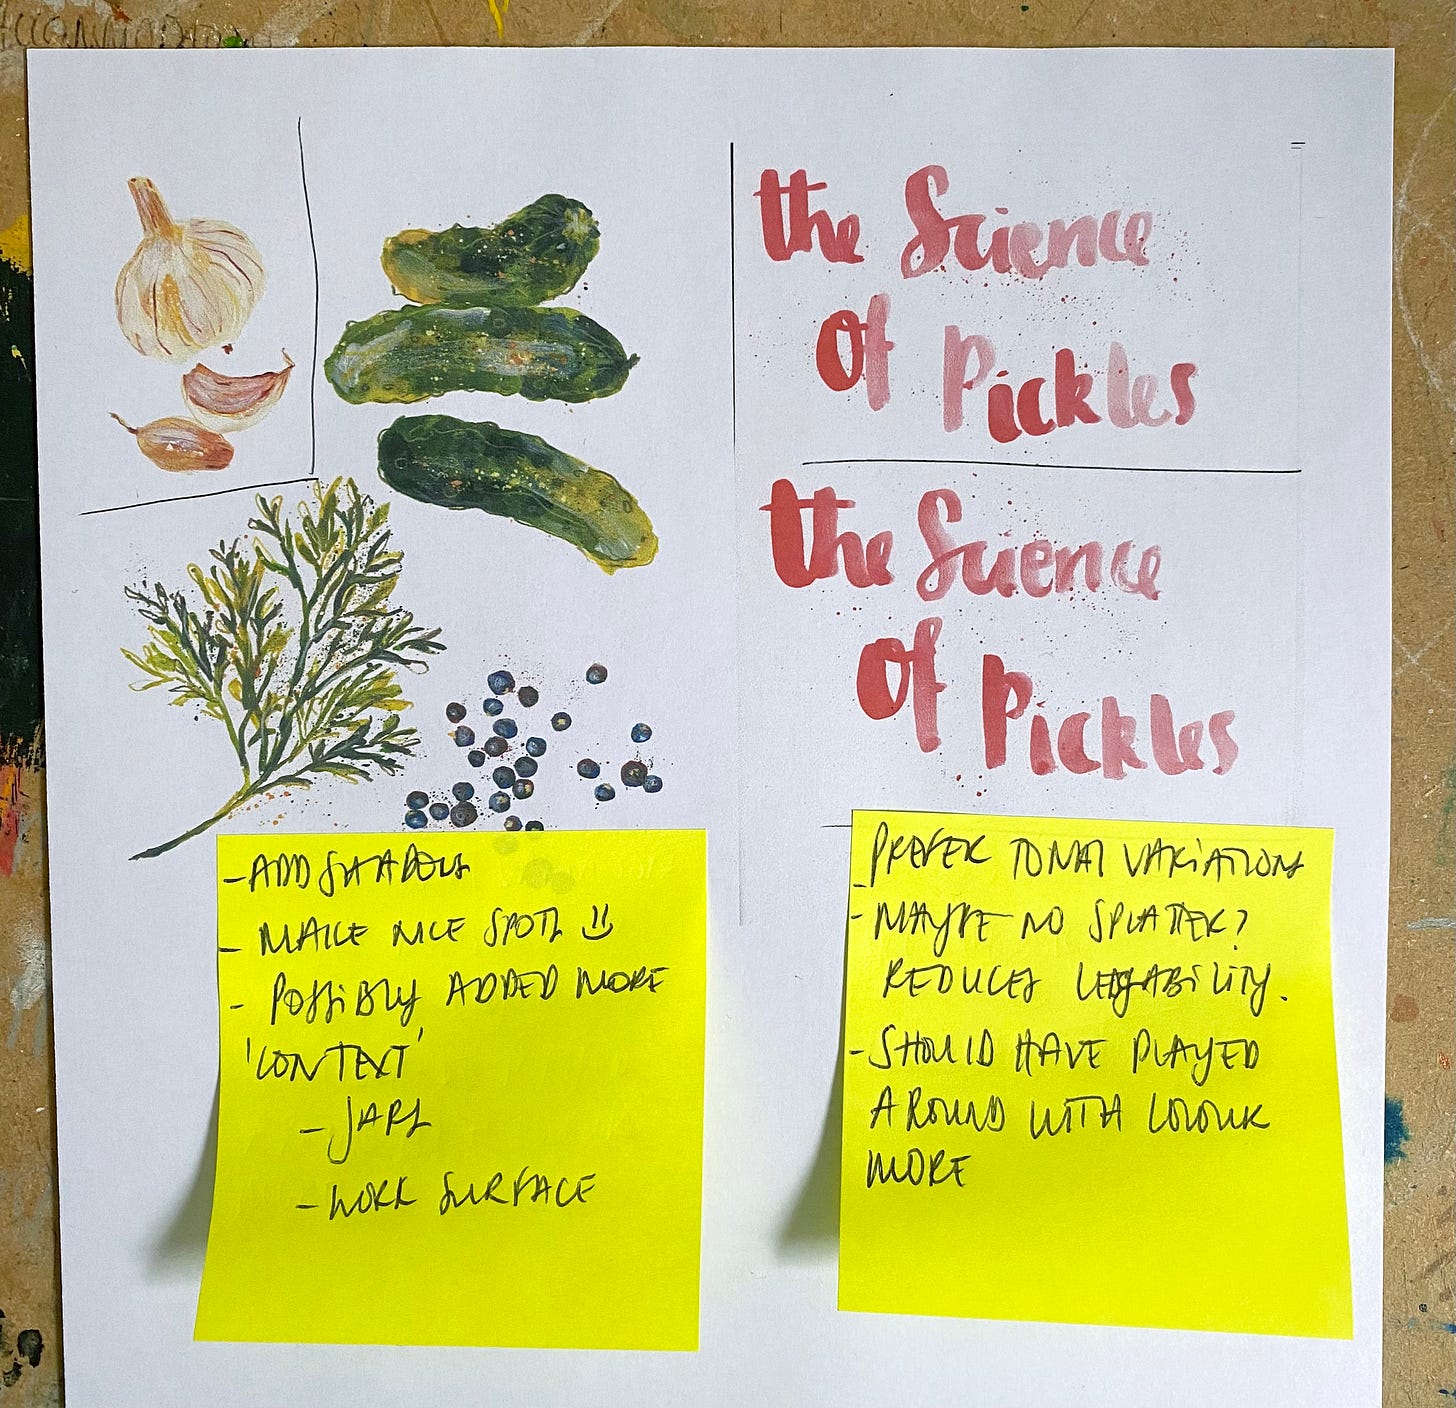 the Science
Of Pickles
the Science
Of Pickles
- ADD SHADOWS
- MAKE NICE SPOTS
- POSSIBLY ADDED MORE
'CONTEXT'
- JARS
- WORK SURFACE
- PREFER TONAL VARIATIONS
- MAYBE NO SPLATTER?
REDUCES LEGABILITY.
- SHOULD HAVE PLAYED
AROUND WITH COLOUR
MORE